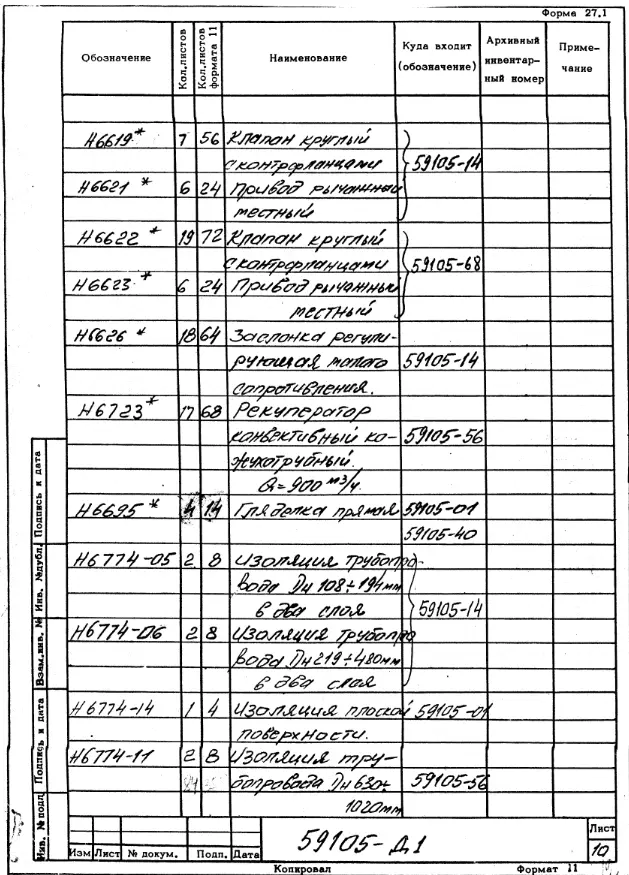 Форма 27.1
Обозначение Кол.листов Кол.листов формата 11 Наименование Куда входит (обозначение) Архивный инвентар- ный номер Приме- чание
Н6619* 7 56 Клапан круглый
с контрфланцами 59105-14
Н6621* 6 24 Привод рычажный
местный
Н6622* 19 72 Клапан круглый
с контрфланцами 59105-68
Н6623* 6 24 Привод рычажный
местный
Н6626* 18 64 Заслонка регули-
рующая малого 59105-14
сопротивления.
Н6723* 17 68 Рекуператор
конвективный ко- 59105-56
жухотрубный.
Q=900 м3/ч.
Н6695* 4 14 Гляделка прямая 59105-01
59105-40
Н6774-05 2 8 Изоляция трубопро-
вода Dн 108÷194мм
в два слоя 59105-14
Н6774-06 2 8 Изоляция трубопро
вода Dн 219÷480мм
в два слоя
Н6774-14 1 4 Изоляция плоской 59105-01
поверхности.
Н6774-11 2 8 Изоляция тру-
бопровода Dн 630÷ 59105-56
1020мм
Инв. № подл. Подпись и дата Взам.инв. № Инв. №дубл. Подпись и дата
Изм Лист № докум. Подп. Дата
59105-Д1
Лист
10
Копировал Формат 11